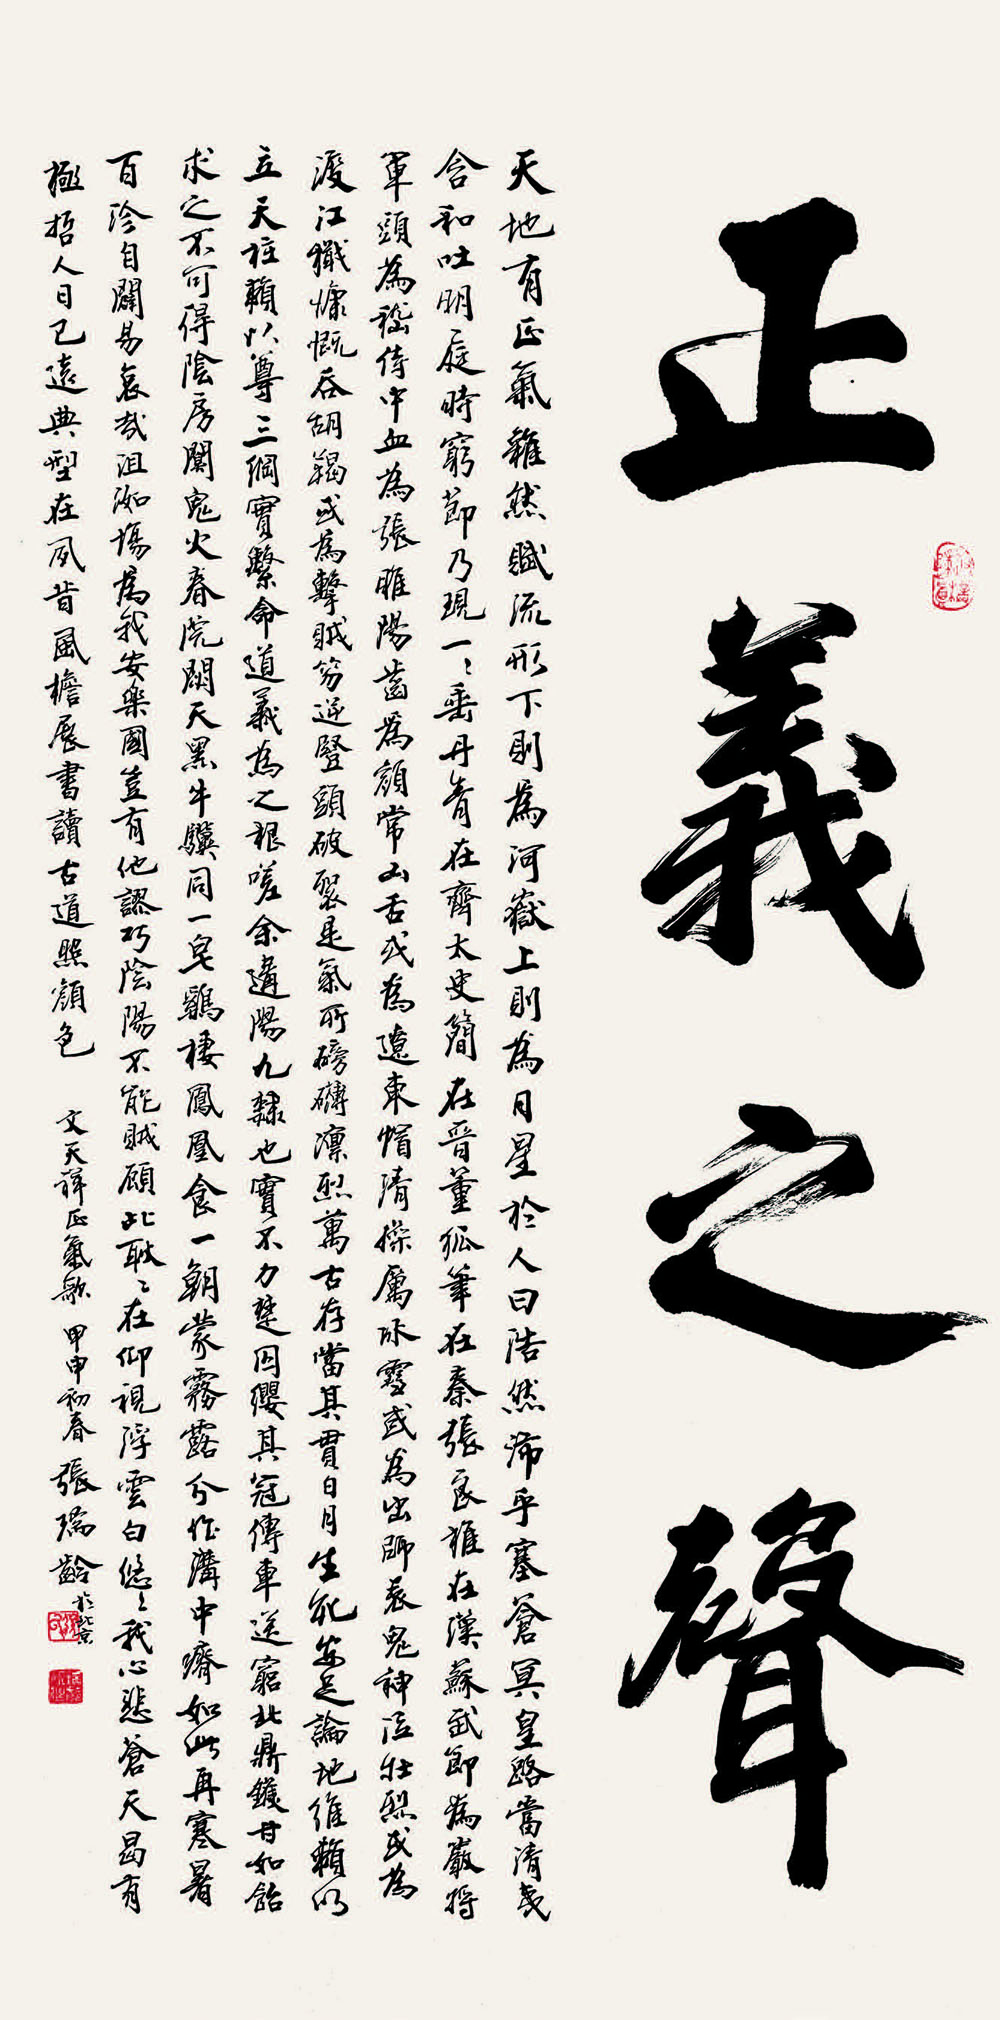 正義之聲
天地有正氣雜然賦流形下則為河嶽上則為日星於人曰浩然沛乎塞蒼冥皇路當清夷
含和吐明庭時窮節乃現一〻垂丹青在齊太史簡在晉董狐筆在秦張良椎在漢蘇武節為嚴將
軍頭為嵇侍中血為張睢陽齒為顏常山舌或為遼東帽清操厲冰雪或為出師表鬼神泣壯烈或為
渡江檝慷慨吞胡羯或為擊賊笏逆豎頭破裂是氣所磅礴凜烈萬古存當其貫日月生死安足論地維賴以
立天柱賴以尊三綱實繫命道義為之根嗟余遘陽九隸也實不力楚囚纓其冠傳車送窮北鼎鑊甘如飴
求之不可得陰房闃鬼火春院閟天黑牛驥同一皂鷄棲鳳凰食一朝蒙霧露分作溝中瘠如此再寒暑
百沴自闢易哀哉沮洳場為我安樂國豈有他謬巧陰陽不能賊顧此耿〻在仰視浮雲白悠〻我心悲蒼天曷有
極哲人日已遠典型在夙昔風檐展書讀古道照顏色
文天祥正氣歌 甲申初春 張瑞齡於北京